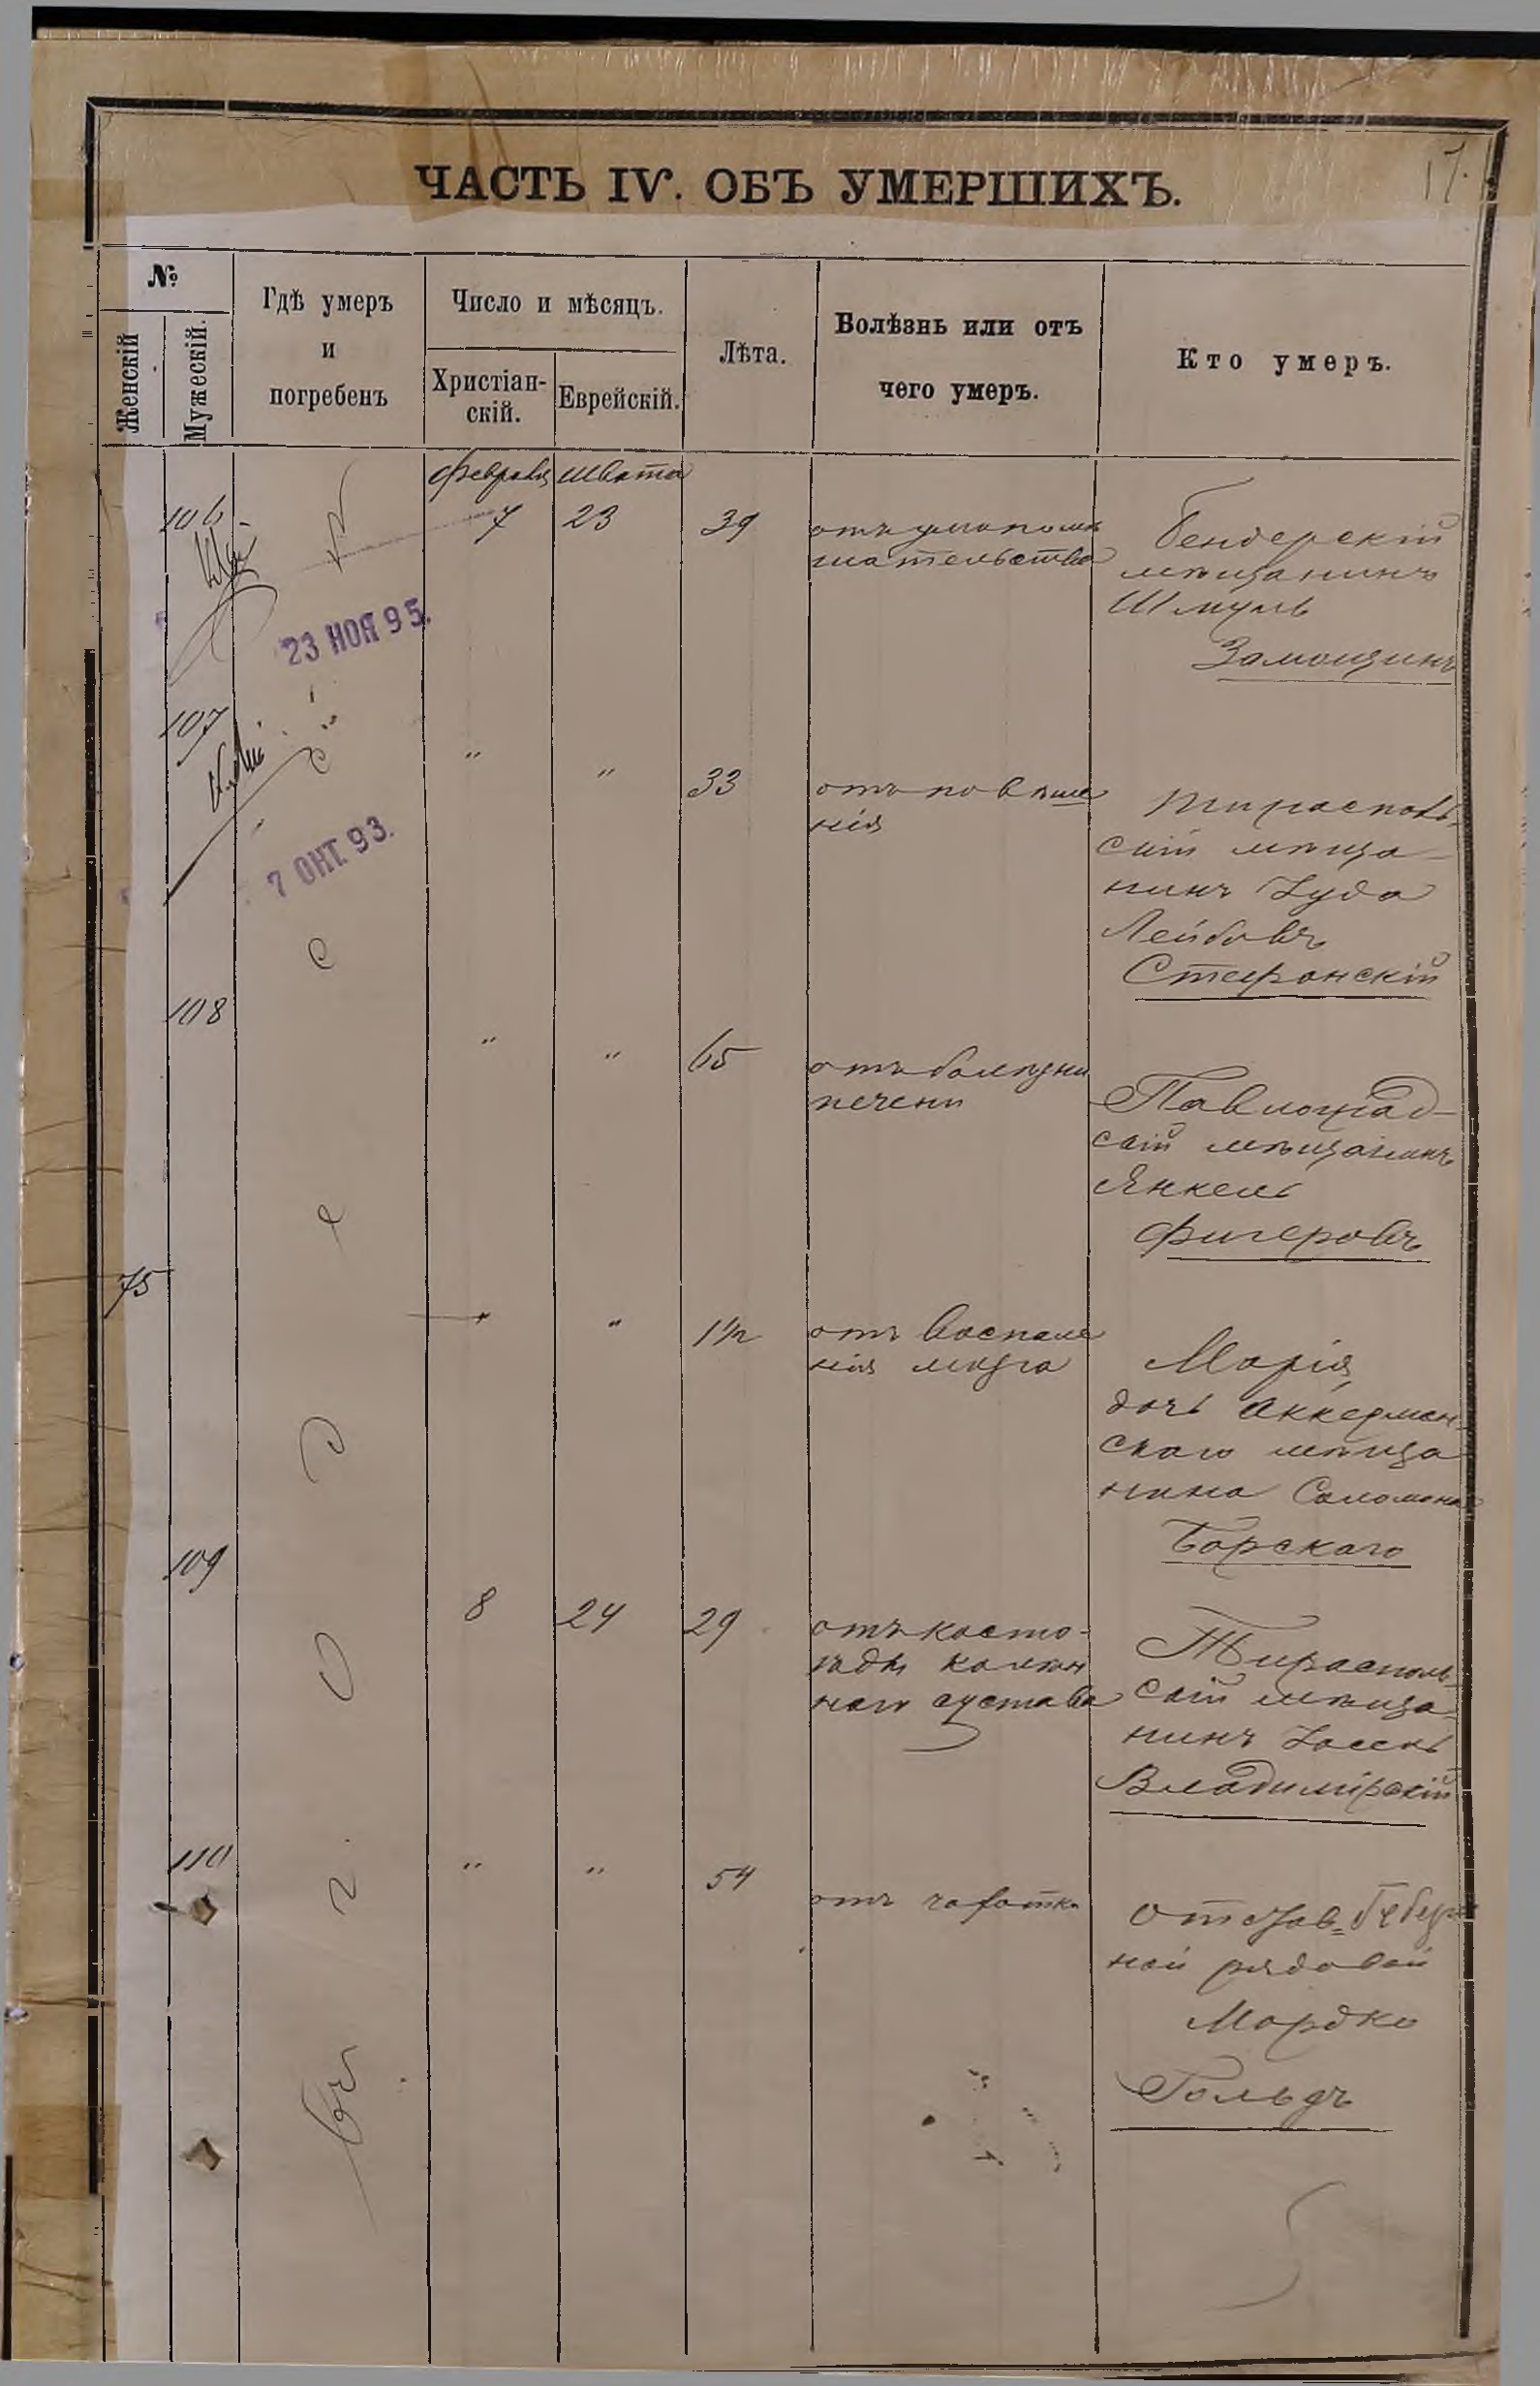 17.
ЧАСТЬ IV. ОБЪ УМЕРШИХЪ.
№
Женскій
Мужескій.
Гдѣ умеръ
и
погребенъ
Число и мѣсяцъ.
Христіан-
скій.
Еврейскій.
Лѣта.
Болѣзнь или отъ
чего умеръ.
Кто умеръ.
февраля швата
106 7 23 39 отъ умопомѣ
шательства
Бендерскій
мѣщанинъ
Шмуль
Замощинъ
23 НОЯ 95.
107 " " 33 отъ повѣше
нія
Тирасполь-
скій мѣща-
нинъ Іуда
Лейбовъ
Стефанскій
7 ОКТ. 93.
108 " " 65 отъ болѣзни
печени
Павлоград-
скій мѣщанинъ
Янкель
Фигеровъ
75 " 1½ отъ воспале
нія мозга
Марія,
дочь Аккерман-
скаго мѣща
нина Соломона
Борскаго
109 8 24 29 отъ косто-
ѣды колѣн
наго сустава
Тирасполь-
скій мѣща-
нинъ Іосель
Владимірскій
110 " " 54 отъ чахотки
рядовой
Мордко
Гольдъ
Одесса